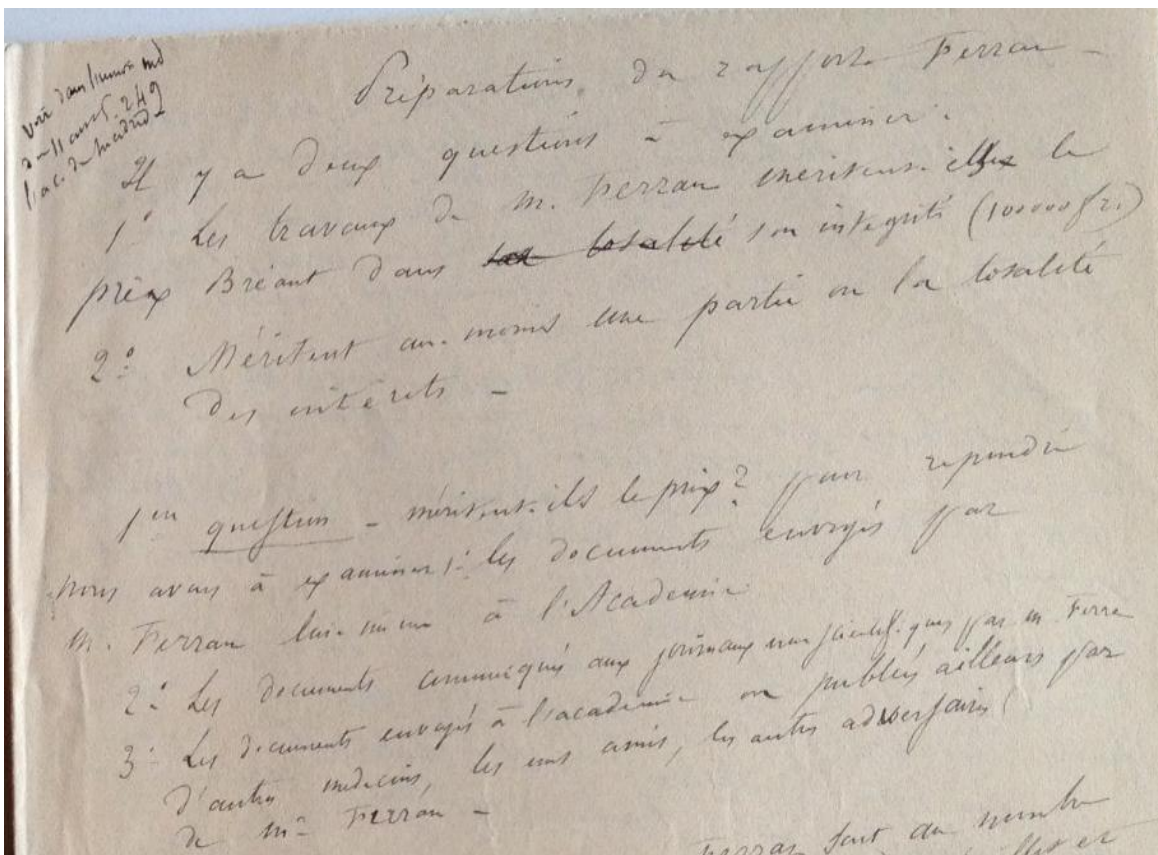 voir dans
11 août. 249
l'ac. de Madrid
Préparations du rapport Ferran —
Il y a deux questions à examiner.
1° Les travaux de M. Ferran méritent-ils le
prix Bréant dans sa totalité son intégrité (100000 fr.)
2° Méritent au-moins une partie ou la totalité
des intérêts —
1ere question — méritent-ils le prix? pour repondre
nous avons à examiner 1° les documents envoyés par
M. Ferran lui-même à l'Académie
2° Les documents communiqués aux journaux scientifiques par M Ferra
3° Les documents envoyés à l'académie ou publiés ailleurs par
d'autres médecins, les uns amis, les autres adversaires
de Mr Ferran —
Ferran sont au nombre
et